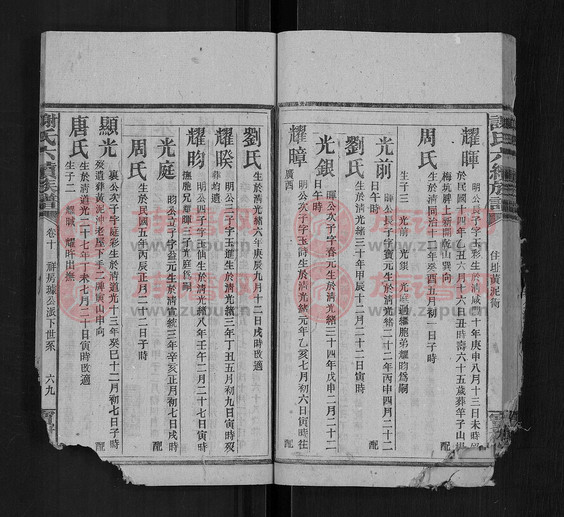 謝氏六續族譜
住址黃泥衝
耀暉
明公長子字
彩生於清咸豐十年庚申八月十三日未時
歿於民國十四年乙丑六月十六日丑時壽六十五歲葬羊子山
梅坑牌上新開乾山巽向
周氏
生於清同治十二年癸酉五月初一日
生子三 光前 光銀 光
過繼胞弟耀昀為嗣
光前
暉公長子字寶元生於清光緒二十二年丙申四月二十二
日午時
配
劉氏
生於清光緒三十年甲辰十二月二十二日寅時
光銀
暉公次子字春元生於清光緒三十四年戊申二月二十二
日午時
配
耀暲
明公次子字玉
生於清光緒元年乙亥七月初六日寅時往
廣西
劉氏
生於清光緒六年庚辰九月十二日戌時改適
耀暌
明公三子字玉
生於清光緒三年丁丑五月初九日寅時歿
葬均遺
耀昀
明公四子字玉仙生於清光緒八年壬午二月二十七日寅時
撫胞兄耀暉三子光庭為嗣
配
光庭
昀公次子字益元生於清宣統三年辛亥正月初七日戌時
配
周氏
生於民國五年丙辰正月二十二日子時
顯光
襄公次子字庭彩生於清道光十三年癸巳十二月初七日子時
歿遺葬黃泥沖老屋下手二牌寅山申向
配
唐氏
生於清道光二十七年丁未七月二十日寅時改適
生子二 耀
耀
出撫
謝氏六續族譜
卷十 祥房
公派下世系
六九
www.zupu.cn
族譜網